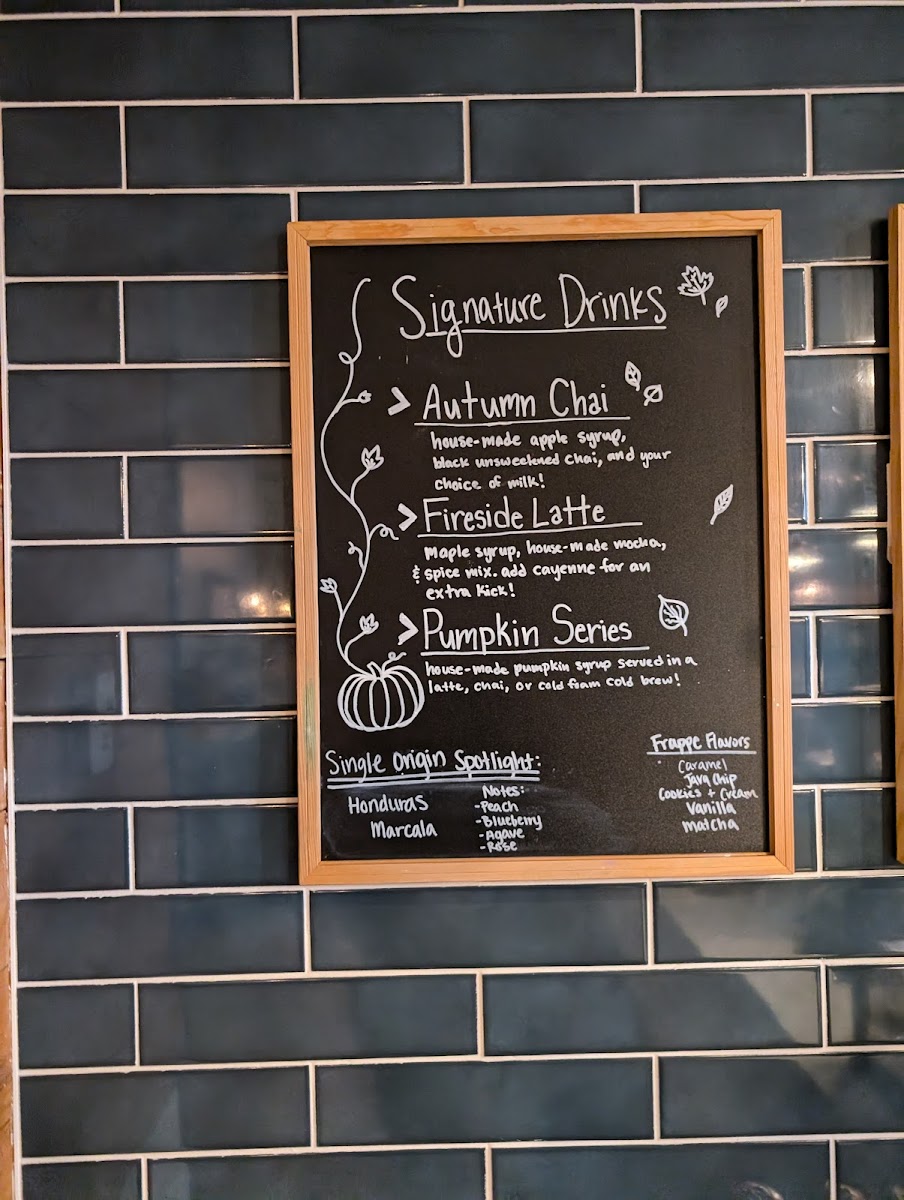 Signature Drinks
> Autumn Chai
house-made apple syrup,
black unsweetened chai, and your
choice of milk!
> Fireside Latte
maple syrup, house-made mocha,
& spice mix. add cayenne for an
extra kick!
> Pumpkin Series
house-made pumpkin syrup served in a
latte, chai, or cold foam cold brew!
Single Origin Spotlight:
Honduras
Marcala
Notes:
-Peach
-Blueberry
-Agave
-Rose
Frappe Flavors
Caramel
Java Chip
Cookies + Cream
Vanilla
Matcha